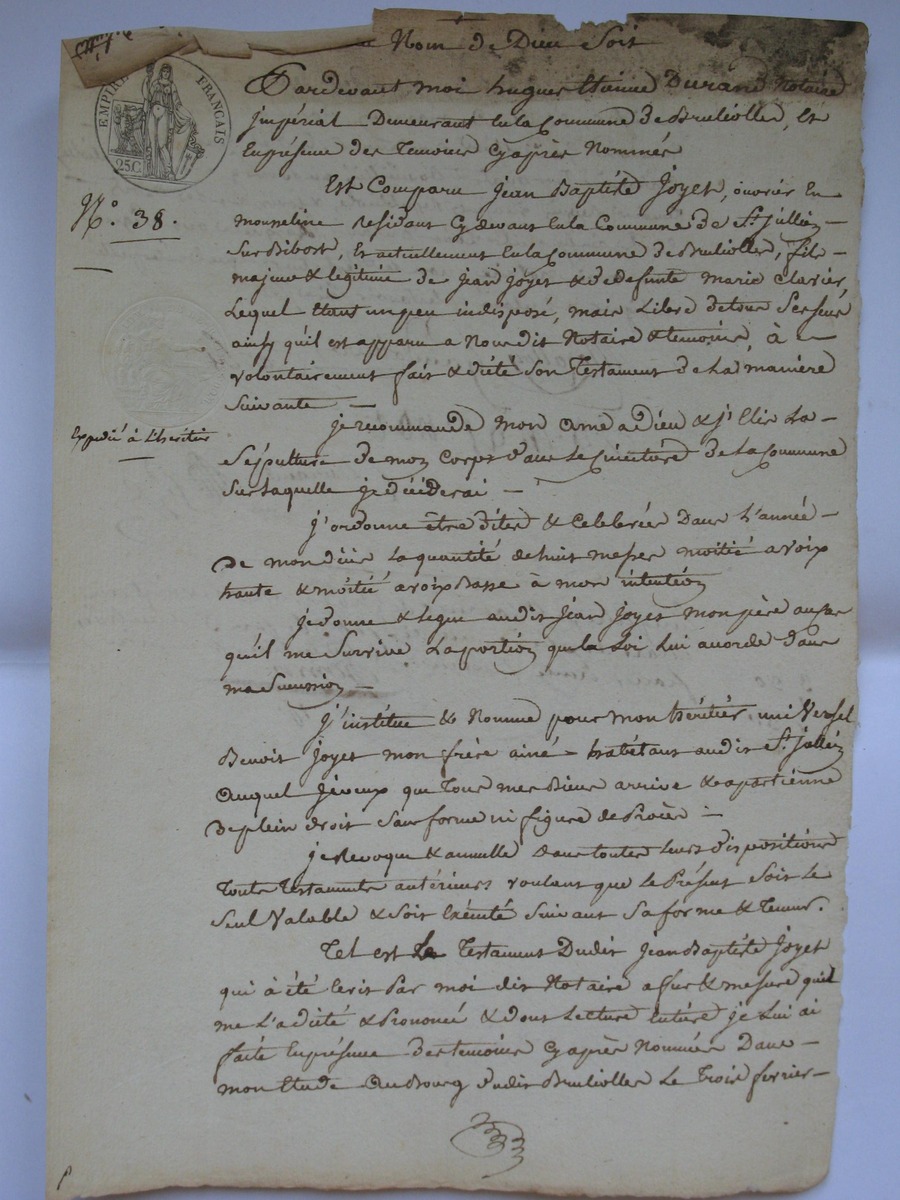 Nom de Dieu Soit
EMPIRE FRANÇAIS
25 C.
Pardevant moi hugues Etienne Durand Notaire
jmpérial Demeurant En la Commune de Brulliolles, Et
En présence des Temoins Cy après Nommés
N.° 38.
Est Comparu Jean Baptiste Joyet, ouvrier En
mousseline residant Cy devant en la Commune de St. jullien
Sur Bibost, Et actuellement En la Commune de Brulliolles, fils
majeur & legitime de jean joyet & de defunte marie Clavier,
Lequel Etant un peu indisposé, mais Libre de tous Ses sens
ainsy qu'il est apparu a Nous dit Notaire & temoins, à
volontairement fait & dicté son Testament de La maniere
Suivante
Expedié à L'heritier
je recommande mon ame a dieu & j'Elis La
Sépulture de mon Corps dans Le Cimetière de La Commune
Sur Laquelle je décéderai
j'ordonne être dites & Celebrées Dans L'année
De mon décès La quantité de huit messes moitié a voix
haute & moitié a voix basse à mon intention
je donne & legue audit jean joyet mon père au cas
qu'il me Survive La portion que la Loi Lui accorde dans
ma Succession
J'institue & Nomme pour mon héritier universel
Benoit Joyet mon frère ainé habitant audit St. jullien
auquel je veux que Tous mes Biens arrive & apartienne
De plein droit Sans forme ni figure de Procès
je Revoque & annulle Dans toutes Leurs dispositions
Touts Testaments antérieurs voulant que Le Présent Soit Le
Seul Valable & Soit Exécuté Suivant Sa forme & Teneur.
Tel est Le Testament Dudit Jean Baptiste Joyet
qui à été Ecrit Par moi dit Notaire a fur & mesure qu'il
me L'a dicté & Prononcé & dont Lecture Entière je Lui ai
faite En présence des temoins Cy après Nommés Dans
mon Etude au Bourg dudit Brulliolles Le Trois fevrier